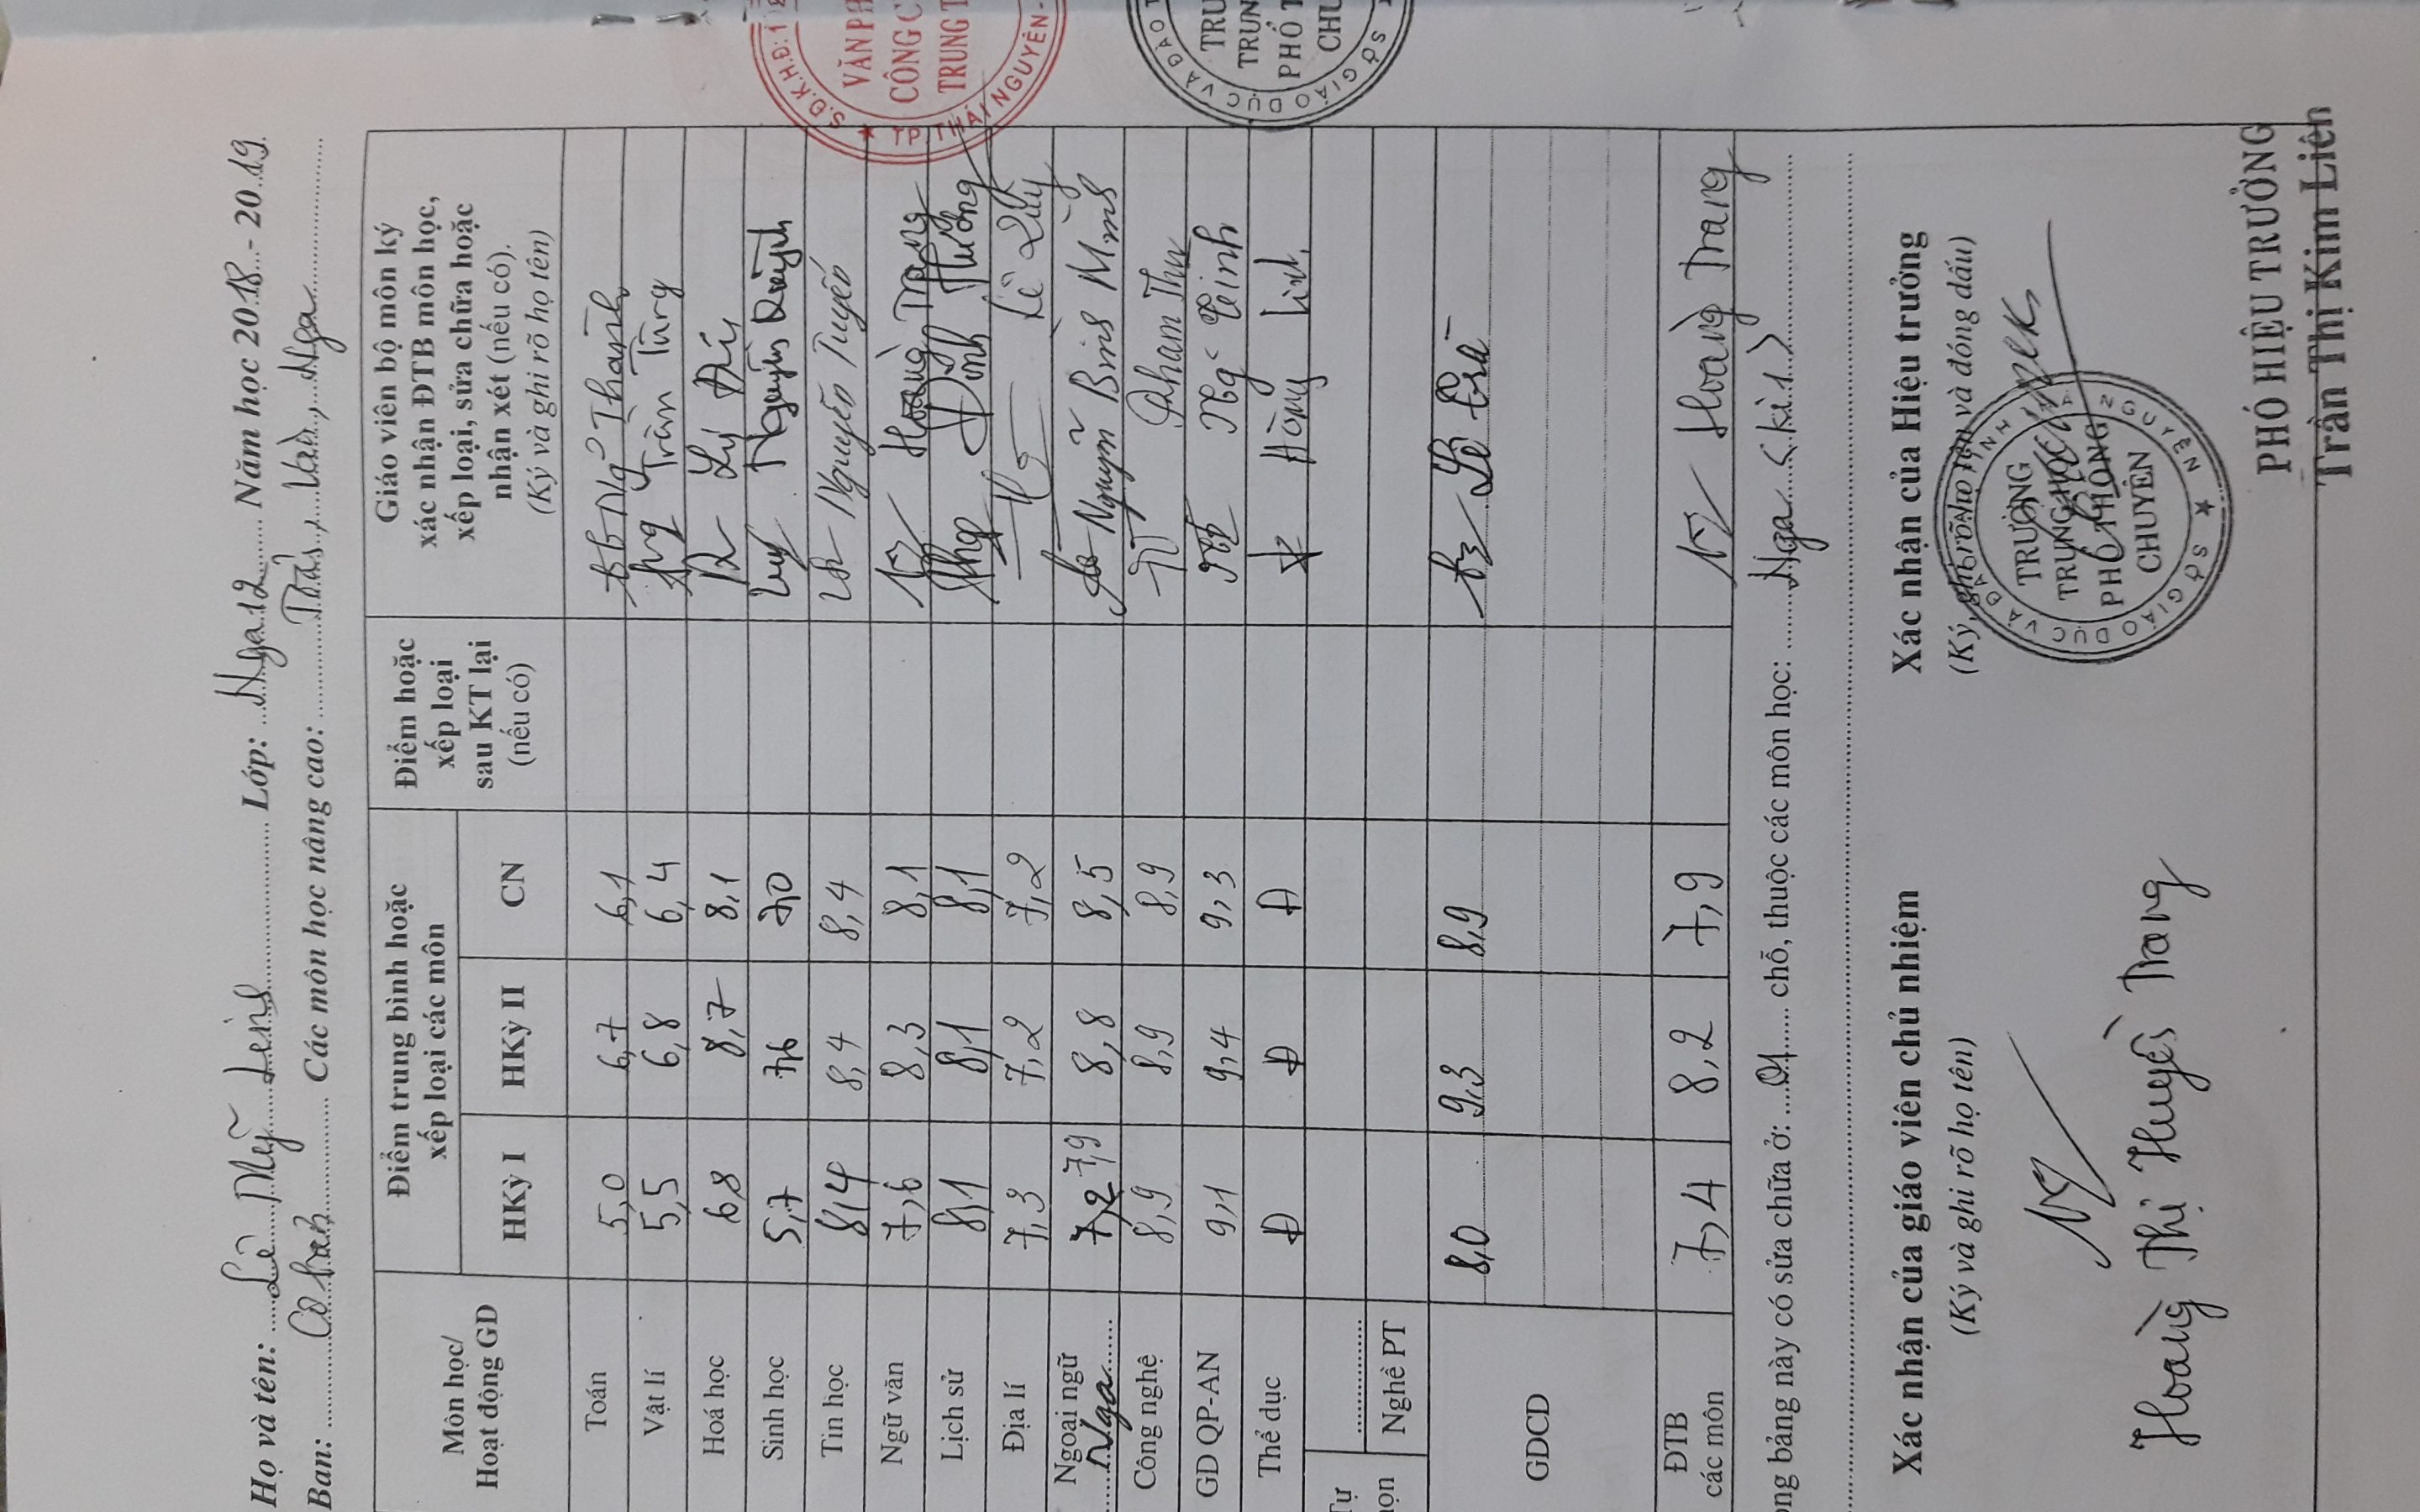 Họ và tên: Lê Mỹ Linh Lớp: Nga 12 Năm học 2018 - 2019
Ban: Cơ bản Các môn học nâng cao: Toán, Văn, Nga
Môn học/
Hoạt động GD
Điểm trung bình hoặc
xếp loại các môn
HKỳ I HKỳ II CN
Điểm hoặc
xếp loại
sau KT lại
(nếu có)
Giáo viên bộ môn ký
xác nhận ĐTB môn học,
xếp loại, sửa chữa hoặc
nhận xét (nếu có).
(Ký và ghi rõ họ tên)
Toán 5,0 6,7 6,1 Thành
Vật lí 5,5 6,8 6,4 Trần Tùng
Hoá học 6,8 8,7 8,1
Sinh học 5,7 7,6 7,0 Nguyễn Quỳnh
Tin học 8,4 8,4 8,4 Nguyễn Tuyến
Ngữ văn 7,6 8,3 8,1 Hoàng Trang
Lịch sử 8,1 8,1 8,1 Đinh Hường
Địa lí 7,3 7,2 7,2 Lê Quý
Ngoại ngữ 7,2 7,9 8,8 8,5 Nguyễn Bình Minh
Nga
Công nghệ 8,9 8,9 8,9 Phạm Thu
GD QP-AN 9,1 9,4 9,3
Thể dục Đ Đ Đ Hồng Lĩnh
Tự
họn
Nghề PT
GDCD 8,0 9,3 8,9
ĐTB
các môn
7,4 8,2 7,9 Hoàng Trang
ong bảng này có sửa chữa ở: 01 chỗ, thuộc các môn học: Nga (kì 1)
Xác nhận của giáo viên chủ nhiệm
(Ký và ghi rõ họ tên)
Hoàng Thị Huyền Trang
Xác nhận của Hiệu trưởng
(Ký, ghi rõ họ tên và đóng dấu)
TRƯỜNG
TRUNG HỌC
PHỔ THÔNG
CHUYÊN
SỞ GIÁO DỤC VÀ ĐÀO
PHÓ HIỆU TRƯỞNG
Trần Thị Kim Liên
S.Đ.K.H.Đ: 1
VĂN PH
CÔNG C
TRUNG T
TP THÁI NGUYÊN
TRU
TRUN
PHỔ T
CHU
SỞ GIÁO DỤC VÀ ĐÀO T